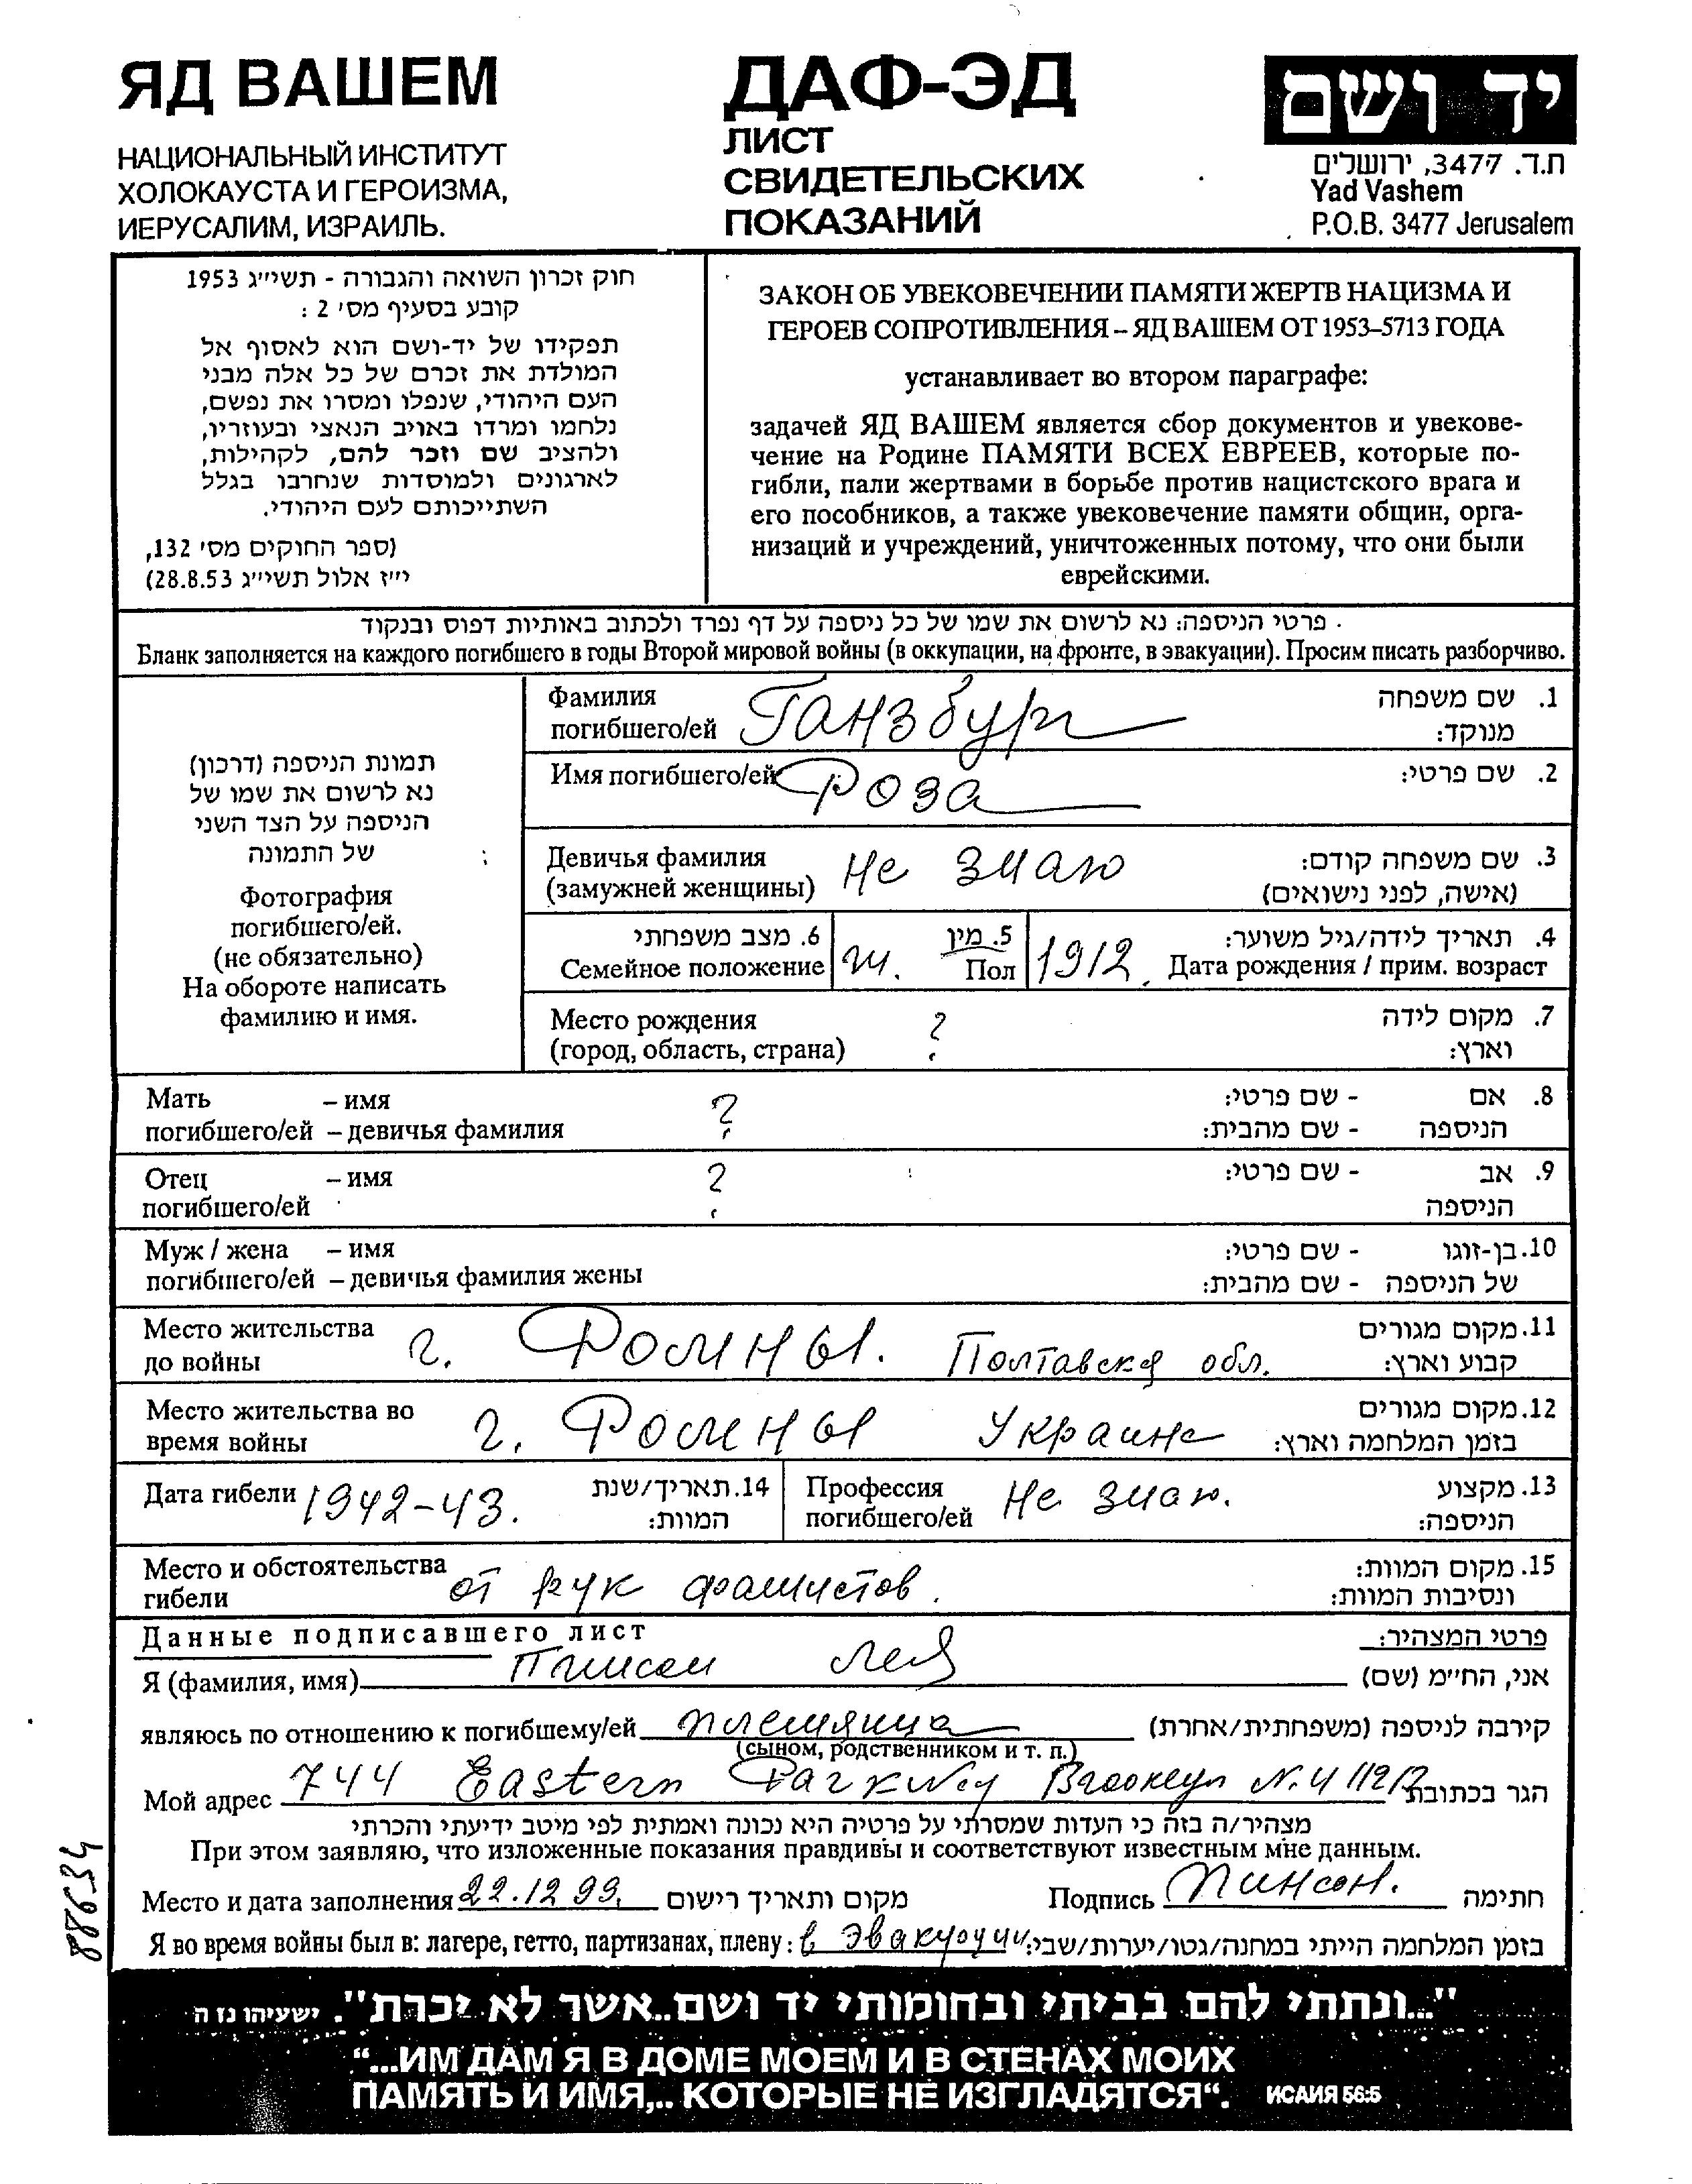 ЯД ВАШЕМ
НАЦИОНАЛЬНЫЙ ИНСТИТУТ
ХОЛОКАУСТА И ГЕРОИЗМА,
ИЕРУСАЛИМ, ИЗРАИЛЬ.
ДАФ-ЭД
ЛИСТ
СВИДЕТЕЛЬСКИХ
ПОКАЗАНИЙ
יד ושם
ת.ד. 3477, ירושלים
Yad Vashem
P.O.B. 3477 Jerusalem
חוק זכרון השואה והגבורה - תשי״ג 1953
קובע בסעיף מס׳ 2 :
תפקידו של יד-ושם הוא לאסוף אל
המולדת את זכרם של כל אלה מבני
העם היהודי, שנפלו ומסרו את נפשם,
נלחמו ומרדו באויב הנאצי ובעוזריו,
ולהציב שם וזכר להם, לקהילות,
לארגונים ולמוסדות שנחרבו בגלל
השתייכותם לעם היהודי.
(ספר החוקים מס׳ 132,
י״ז אלול תשי״ג 28.8.53)
ЗАКОН ОБ УВЕКОВЕЧЕНИИ ПАМЯТИ ЖЕРТВ НАЦИЗМА И
ГЕРОЕВ СОПРОТИВЛЕНИЯ – ЯД ВАШЕМ ОТ 1953–5713 ГОДА
устанавливает во втором параграфе:
задачей ЯД ВАШЕМ является сбор документов и увекове-
чение на Родине ПАМЯТИ ВСЕХ ЕВРЕЕВ, которые по-
гибли, пали жертвами в борьбе против нацистского врага и
его пособников, а также увековечение памяти общин, орга-
низаций и учреждений, уничтоженных потому, что они были
еврейскими.
פרטי הניספה: נא לרשום את שמו של כל ניספה על דף נפרד ולכתוב באותיות דפוס ובנקוד .
Бланк заполняется на каждого погибшего в годы Второй мировой войны (в оккупации, на фронте, в эвакуации). Просим писать разборчиво.
תמונת הניספה (דרכון)
נא לרשום את שמו של
הניספה על הצד השני
של התמונה
Фотография
погибшего/ей.
(не обязательно)
На обороте написать
фамилию и имя.
Фамилия
погибшего/ей Ганзбург
1. שם משפחה
מנוקד:
Имя погибшего/ей Роза
2. שם פרטי:
Девичья фамилия
(замужней женщины) Не знаю
3. שם משפחה קודם:
(אישה, לפני נישואים)
6. מצב משפחתי
Семейное положение
ж.
5. מין
Пол
1912.
4. תאריך לידה/גיל משוער:
Дата рождения / прим. возраст
Место рождения
(город, область, страна) ?
7. מקום לידה
וארץ:
Мать – имя
погибшего/ей – девичья фамилия
?
8. אם - שם פרטי:
הניספה - שם מהבית:
Отец – имя
погибшего/ей
?
9. אב - שם פרטי:
הניספה
Муж / жена – имя
погибшего/ей – девичья фамилия жены
10. בן-זוגו - שם פרטי:
של הניספה - שם מהבית:
Место жительства
до войны г. Ромны. Полтавская обл.
11. מקום מגורים
קבוע וארץ:
Место жительства во
время войны г. Ромны Украине
12. מקום מגורים
בזמן המלחמה וארץ:
Дата гибели 1942-43.
14. תאריך/שנת
המוות:
Профессия
погибшего/ей Не знаю.
13. מקצוע
הניספה:
Место и обстоятельства
гибели от рук фашистов.
15. מקום המוות:
ונסיבות המוות:
Данные подписавшего лист
פרטי המצהיר:
Я (фамилия, имя) Пинсон Лея אני, החי״מ (שם)
являюсь по отношению к погибшему/ей племяница קירבה לניספה (משפחתית/אחרת)
(сыном, родственником и т. п.)
Мой адрес 744 Eastern Parkwey Brooklyn N.Y 11213 הגר בכתובת
מצהיר/ה בזה כי העדות שמסרתי על פרטיה היא נכונה ואמתית לפי מיטב ידיעתי והכרתי
При этом заявляю, что изложенные показания правдивы и соответствуют известным мне данным.
Место и дата заполнения 22.12 99. מקום ותאריך רישום Подпись Пинсон. חתימה
Я во время войны был в: лагере, гетто, партизанах, плену: в эвакуации בזמן המלחמה הייתי במחנה/גטו/יערות/שבי:
88634
"...ונתתי להם בביתי ובחומותי יד ושם..אשר לא יכרת". ישעיהו נז ה
“...ИМ ДАМ Я В ДОМЕ МОЕМ И В СТЕНАХ МОИХ
ПАМЯТЬ И ИМЯ,.. КОТОРЫЕ НЕ ИЗГЛАДЯТСЯ“. ИСАИЯ 56:5